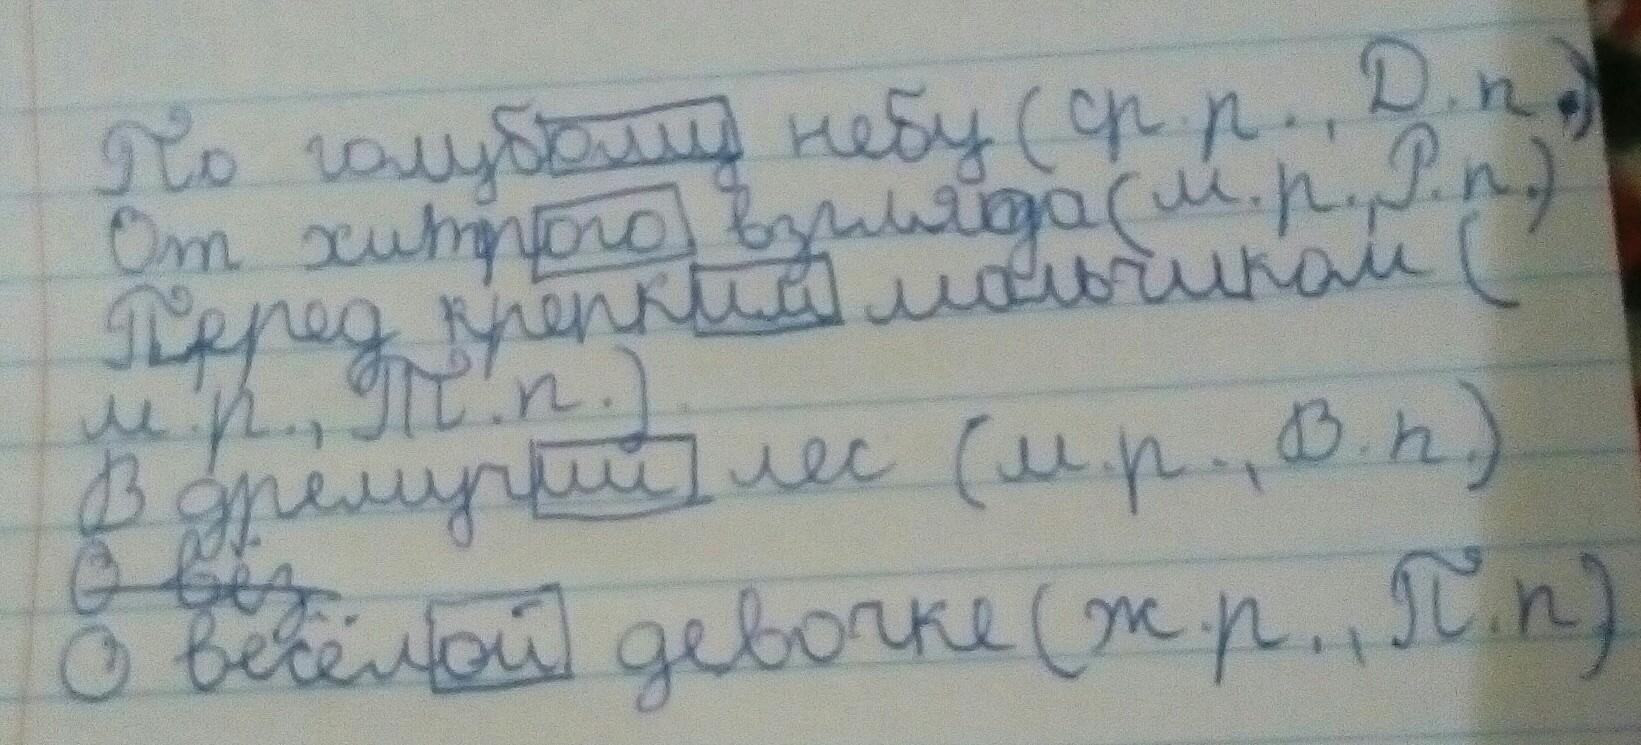 По голубому небу (ср.р., Д.п.)
От хитрого взгляда (м.р., Р.п.)
Перед крепким мальчиком (
м.р., Т.п.)
В дремучий лес (м.р., В.п.)
О вез
О весёлой девочке (ж.р., П.п)